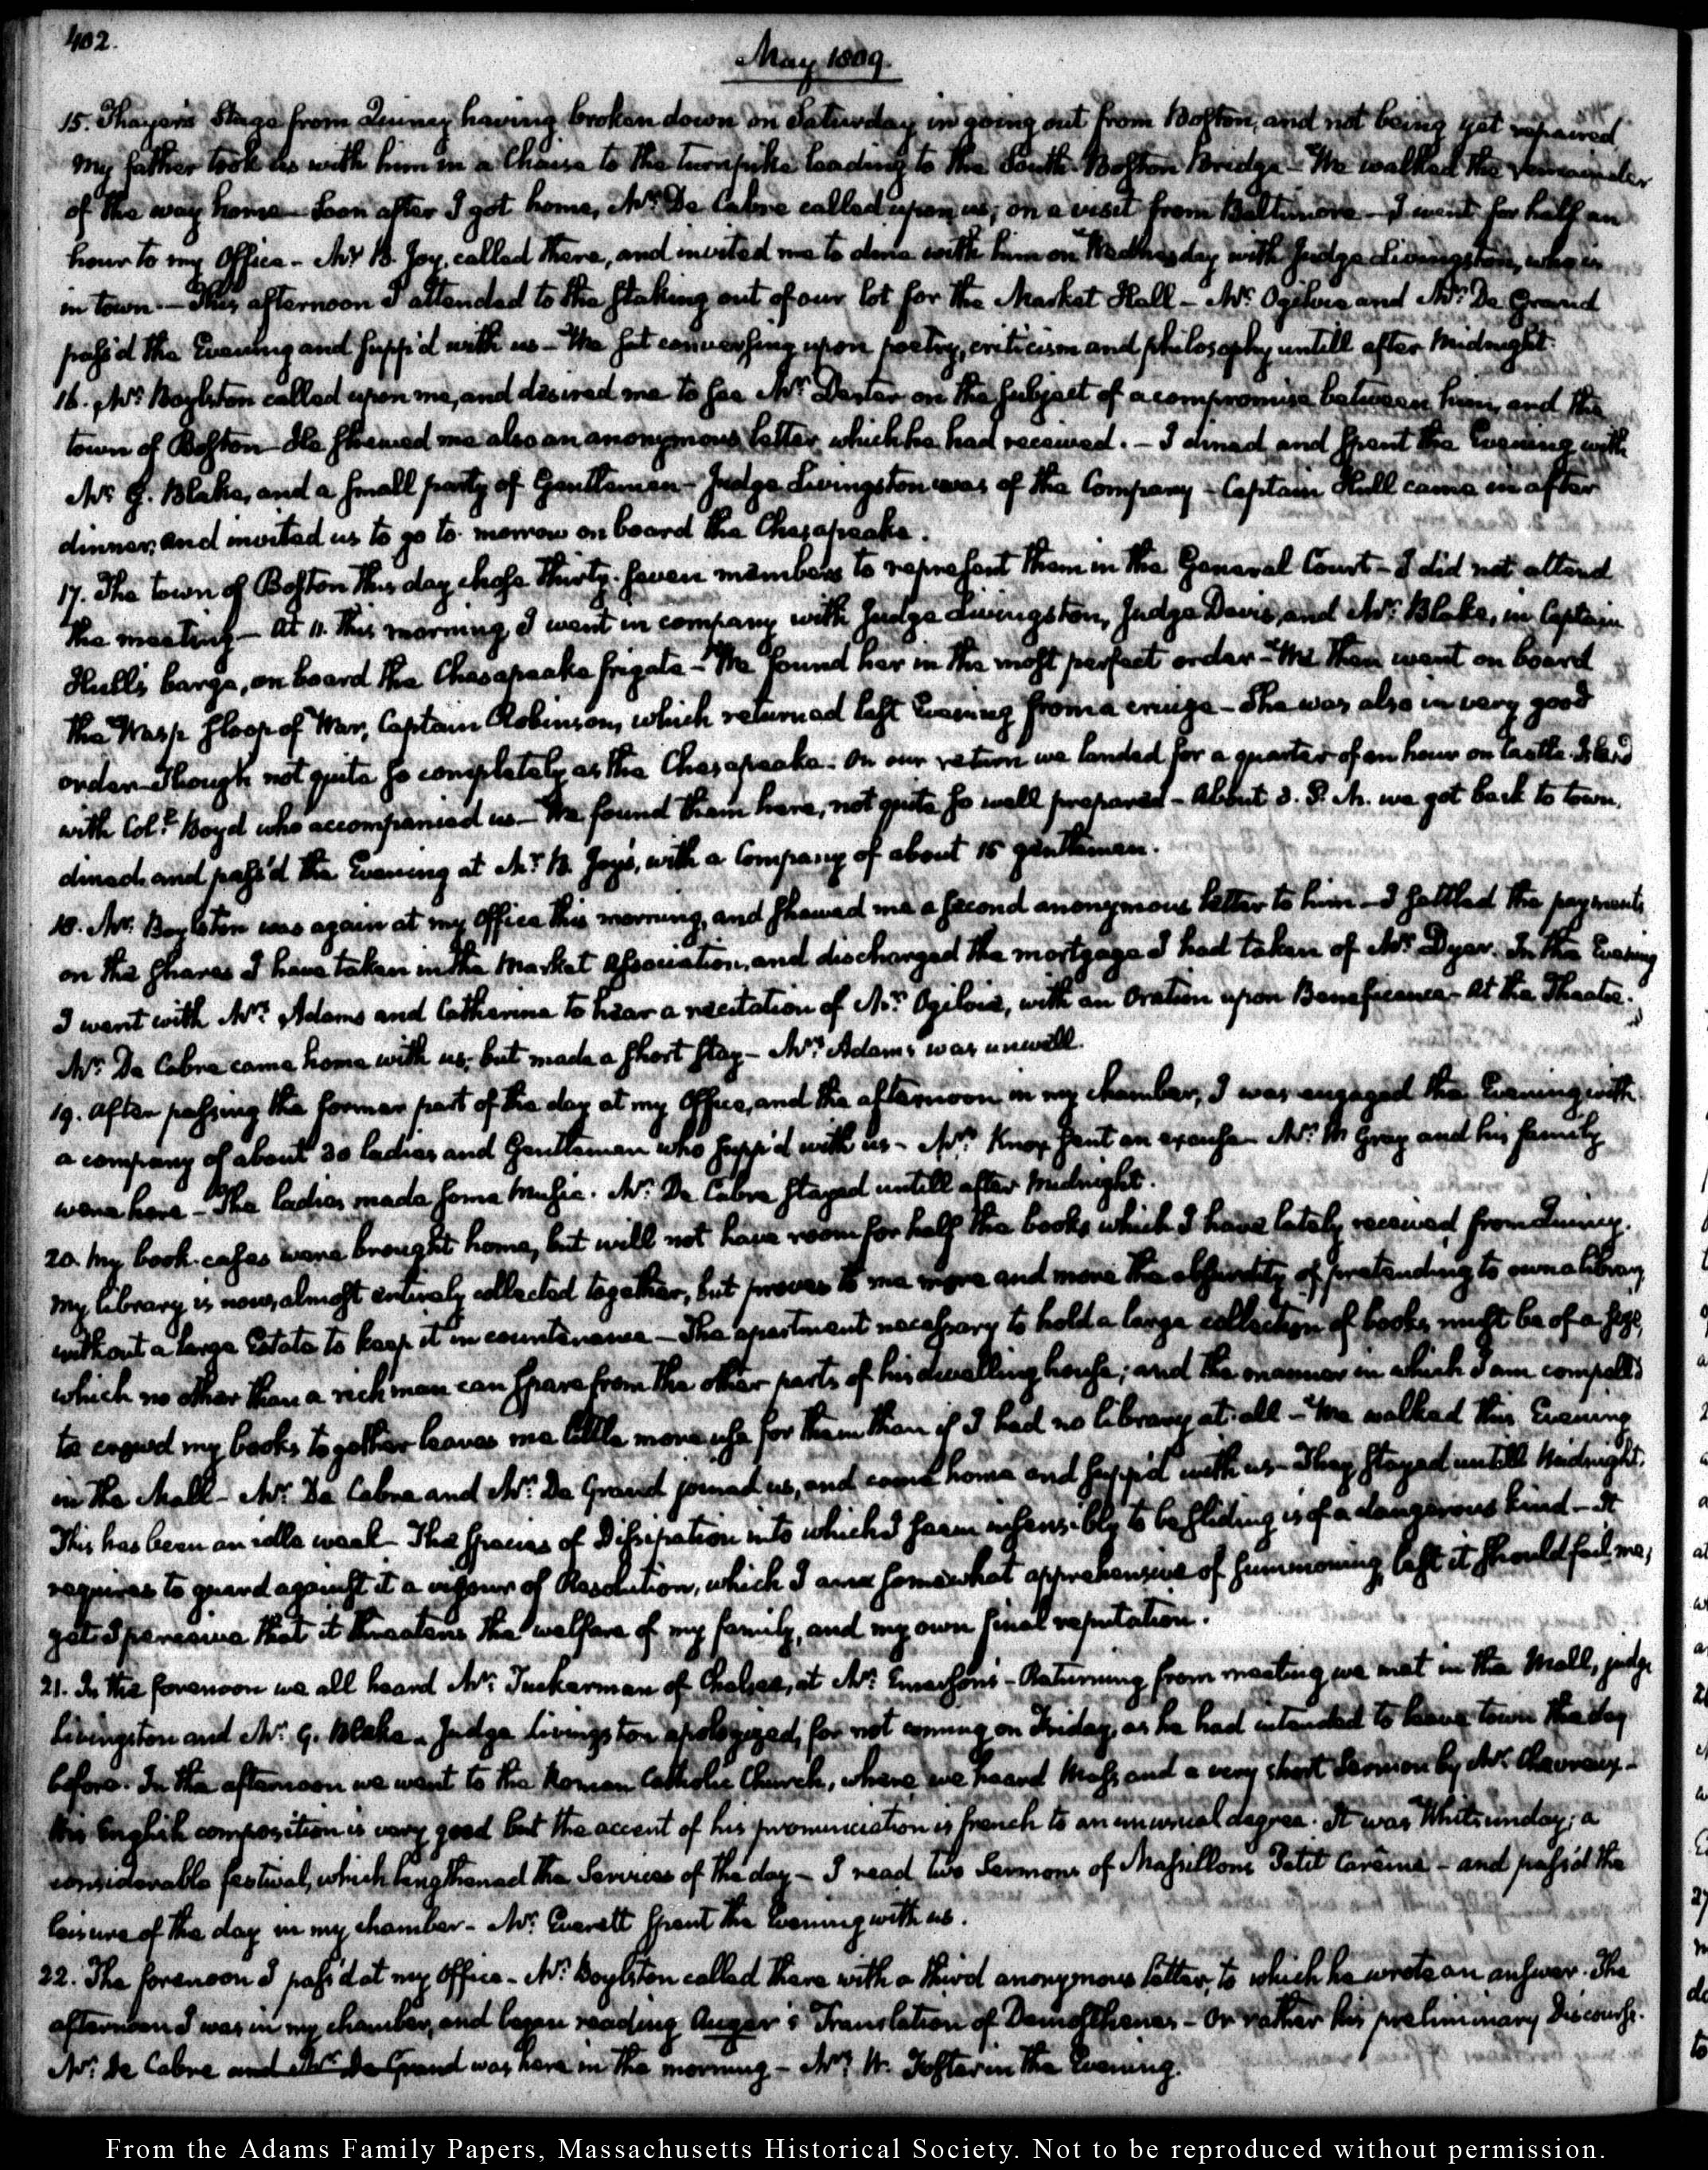 402.
May 1809.
15. Thayer's Stage from Quincy having broken down on Saturday in going out from Boston, and not being yet repaired
my father took us with him in a Chaise to the turnpike leading to the South-Boston Bridge - We walked the remainder
of the way home - Soon after I got home, Mr. De Cabre called upon us, on a visit from Baltimore - I went for half an
hour to my Office - Mr. B. Joy called there, and invited me to dine with him on Wednesday with Judge Livingston, who is
in town. - This afternoon I attended to the staking out of our lot for the Market Hall - Mr. Ogilvie and Mr. De Grand
pass'd the Evening and supp'd with us - We sat conversing upon poetry, criticism and philosophy untill after Midnight.
16. Mr. Boylston called upon me, and desired me to see Mr. Dexter on the subject of a compromise between him, and the
town of Boston - He shewed me also an anonymous letter which he had received. - I dined and spent the Evening with
Mr. G. Blake, and a small party of Gentlemen - Judge Livingston was of the Company - Captain Hull came in after
dinner; and invited us to go to-morrow on board the Chesapeake.
17. The town of Boston this day chose Thirty-seven members to represent them in the General Court - I did not attend
the meeting - At 11. this morning I went in company with Judge Livingston, Judge Davis, and Mr. Blake, in Captain
Hull's barge, on board the Chesapeake frigate - We found her in the most perfect order - We then went on board
the Wasp sloop of War, Captain Robinson, which returned last Evening from a cruize - She was also in very good
order - Though not quite so completely as the Chesapeake. On our return we landed for a quarter of an hour on Castle-Island
with Coll. Boyd who accompanied us - We found them here, not quite so well prepared - About 3. P. M. we got back to town,
dined, and pass'd the Evening at Mr. B. Joy's, with a Company of about 15 gentlemen.
18. Mr. Boylston was again at my Office this morning, and shewed me a second anonymous letter to him - I settled the payments
on the shares I have taken in the Market Association, and discharged the mortgage I had taken of Mr. Dyer. In the Evening
I went with Mrs. Adams and Catherine to hear a recitation of Mr. Ogilvie, with an Oration upon Beneficence - At the Theatre.
Mr. De Cabre came home with us; but made a short stay - Mrs. Adams was unwell.
19. After passing the former part of the day at my Office, and the afternoon in my chamber, I was engaged the Evening with
a company of about 30 ladies and Gentlemen who supp'd with us - Mrs. Knox sent an excuse - Mr. W Gray and his family
were here - The ladies made some Music. Mr. De Cabre stayed untill after Midnight.
20. My book-cases were brought home, but will not have room for half the books which I have lately received from Quincy.
My library is now, almost entirely collected together, but proves to me more and more the absurdity of pretending to own a library
without a large Estate to keep it in countenance - The apartment necessary to hold a large collection of books, must be of a size,
which no other than a rich man can spare from the other parts of his dwelling house; and the manner in which I am compell'd
to crowd my books together leaves me little more use for them than if I had no library at all - We walked this Evening
in the Mall - Mr. De Cabre and Mr. De Grand joined us, and came home and supp'd with us - They stayed untill Midnight.
This has been an idle week - The species of Dissipation into which I seem insensibly to be sliding is of a dangerous kind - It
requires to guard against it a vigour of Resolution, which I am somewhat apprehensive of summoning, lest it should fail me;
yet I perceive that it threatens the welfare of my family, and my own final reputation.
21. In the forenoon we all heard Mr. Tuckerman of Chelsea, at Mr. Emerson's - Returning from meeting we met in the Mall, judge
Livingston and Mr. G. Blake. Judge Livingston apologized, for not coming on Friday, as he had intended to leave town the day
before. In the afternoon we went to the Roman Catholic Church, where we heard Mass and a very short Sermon by Mr. Cheverus -
His English composition is very good but the accent of his pronunciation is french to an unusual degree. It was Whitsunday; a
considerable festival, which lengthened the Services of the day - I read two Sermons of Massillons Petit Carême - and pass'd the
leisure of the day in my chamber - Mr. Everett spent the Evening with us.
22. The forenoon I pass'd at my Office - Mr. Boylston called there with a third anonymous letter, to which he wrote an answer. The
afternoon I was in my chamber, and began reading Auger's Translation of Demosthenes - Or rather his preliminary Discourse.
Mr. De Cabre and Mr. De Grand was here in the morning - Mr. W. Foster in the Evening.
From the Adams Family Papers, Massachusetts Historical Society. Not to be reproduced without permission.